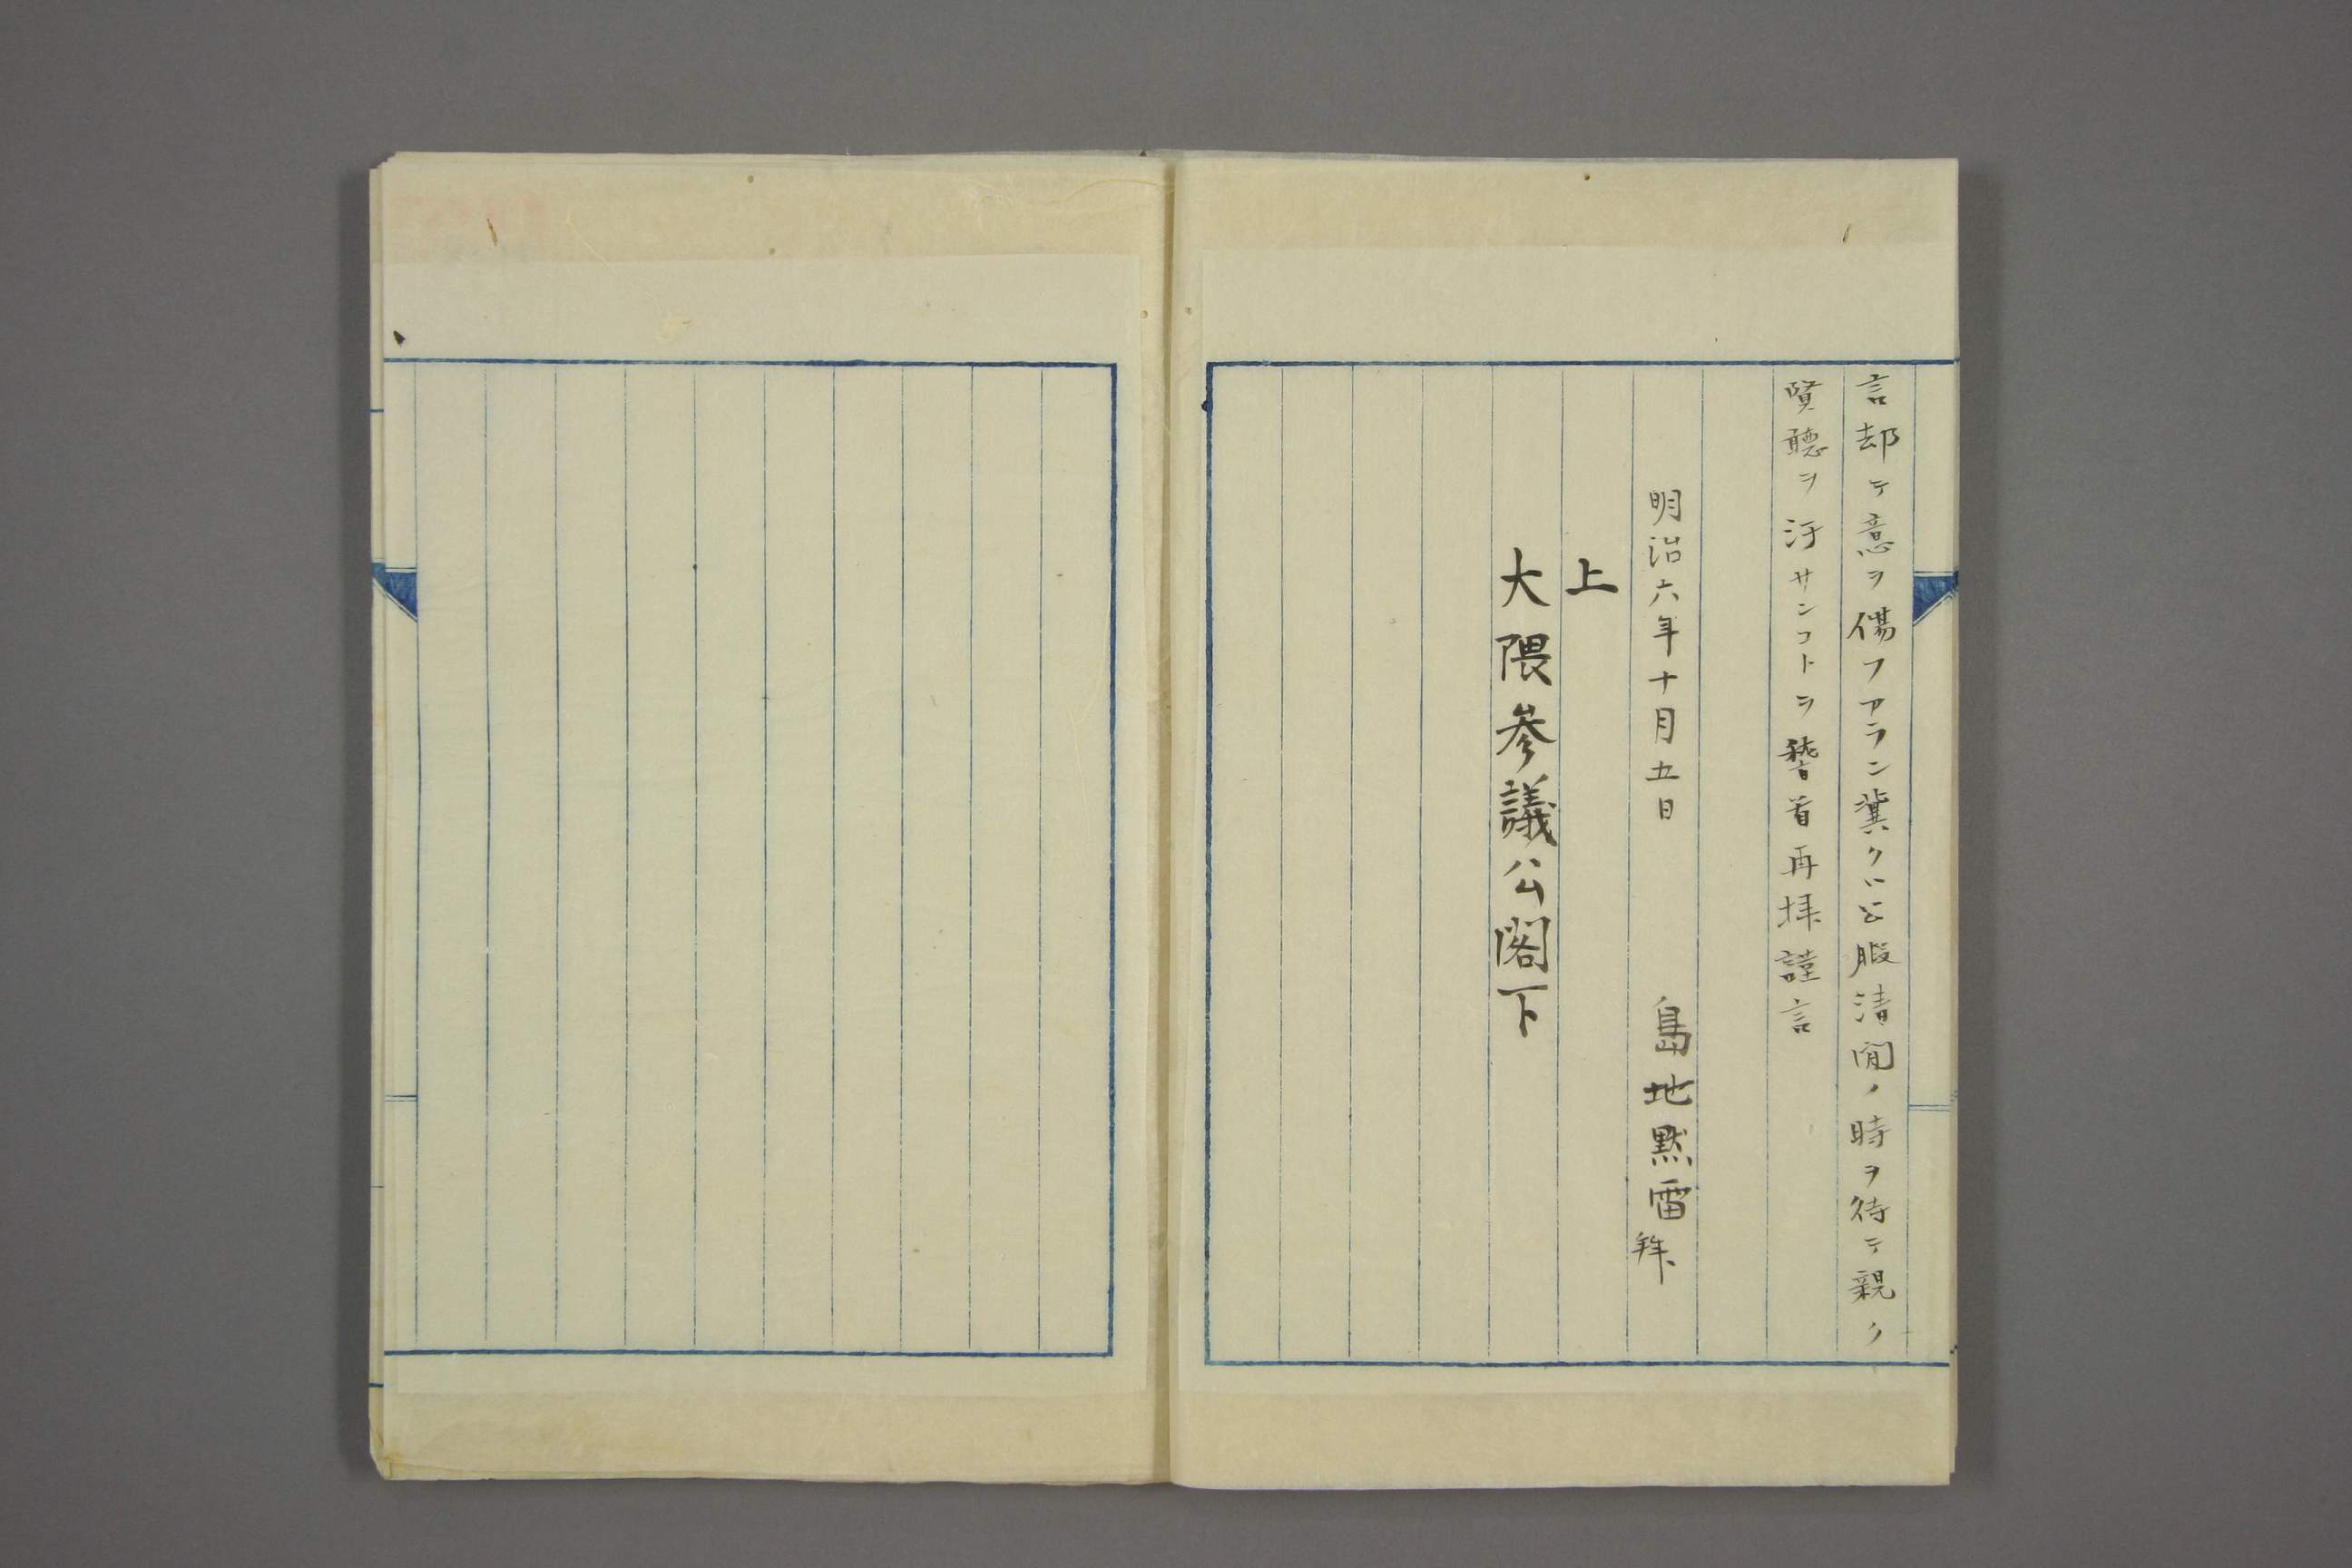 言却テ意ヲ傷フアラン冀クハ公暇清間ノ時ヲ待テ親ク
賢聴ヲ汚サンコトヲ稽首再拝謹言
明治六年十月五日 島地黙雷拜
上
大隈参議公閣下